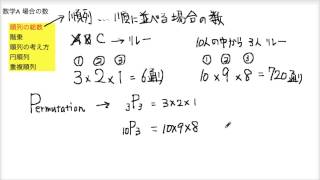 数学A 場合の数
順列の総数
階乗
順列の考え方
円順列
重複順列
順列…順に並べる場合の数
A B C → リレー
① ② ③
3×2×1=6通り
10人の中から3人リレー
① ② ③
10×9×8=720通り
Permutation → ₃P₃ = 3×2×1
₁₀P₃ = 10×9×8